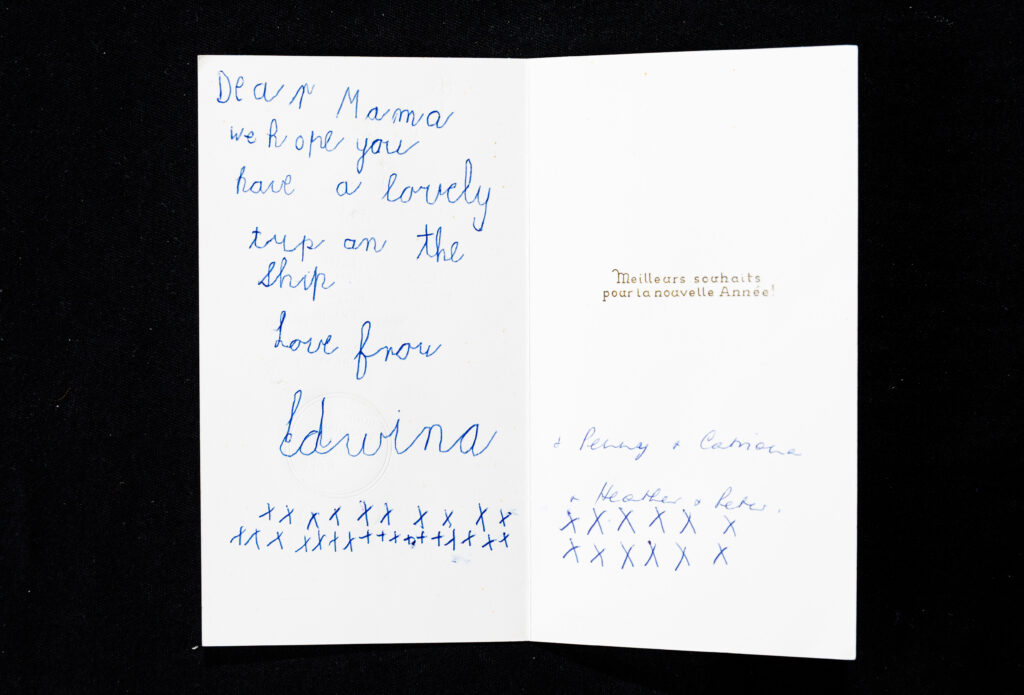 Dear Mama
we hope you
have a lovely
trip an the
ship
Love from
Edwina
xx x x x x x x x x
xx x xxxx++x+++xx xx
Meilleurs souhaits
pour la nouvelle Année!
+ Penny + Catriona
+ Heather + Peter.
x x x x x x
x x x x x x